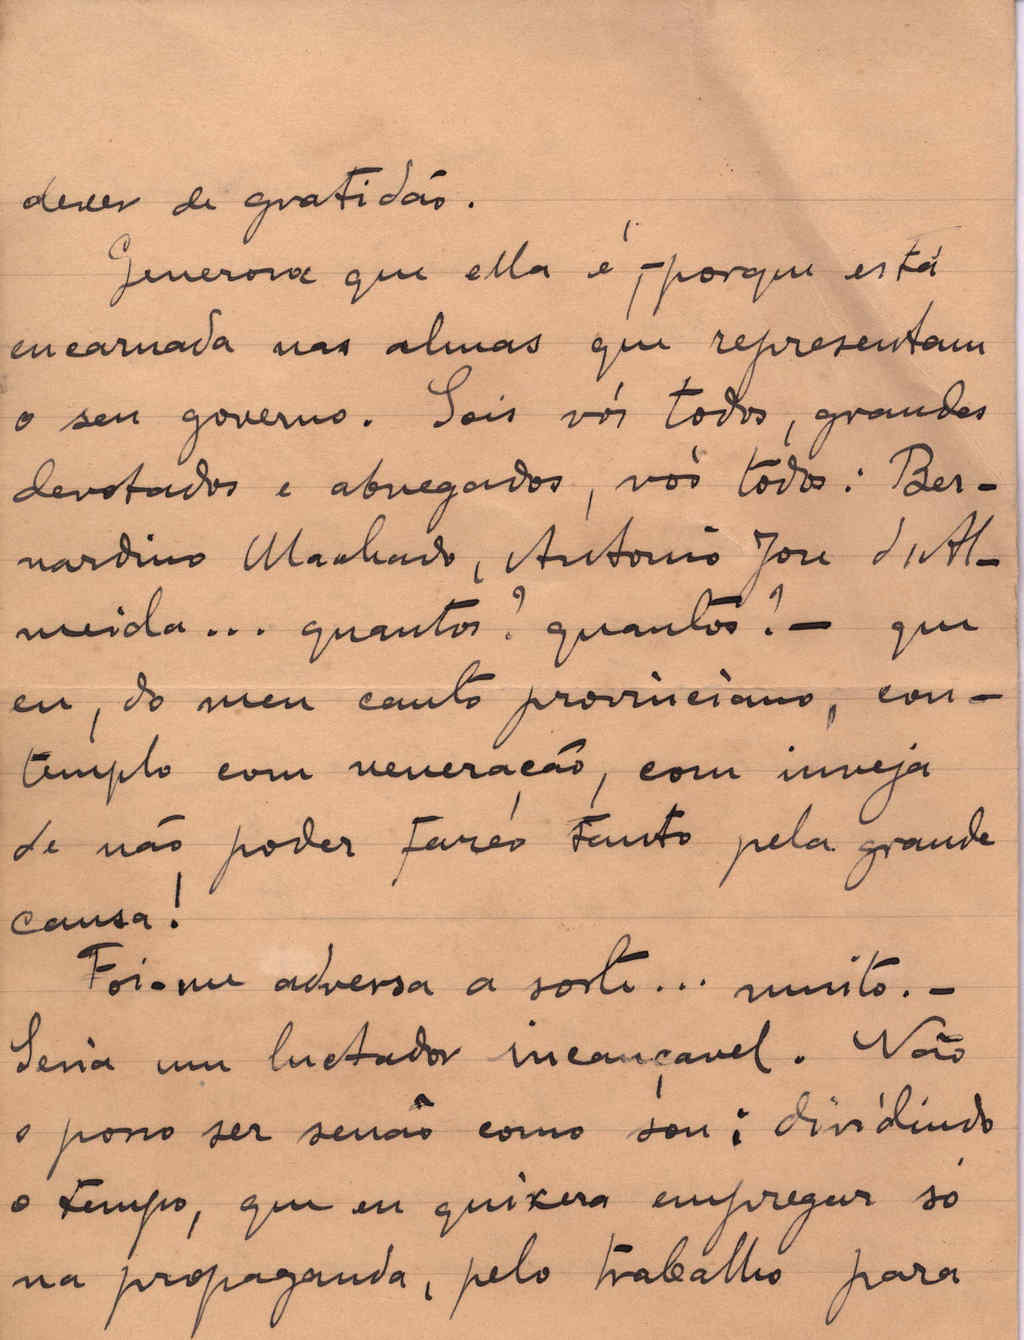 dever de gratidão.
Generosa que ella é, – porque está
encarnada nas almas que representam
o seu governo. Sois vós todos, grandes
devotados e abnegados, vós todos: Ber-
nardino Machado, Antonio José d'Al-
meida... quantos? quantos? – que
eu, do meu canto provinciano, con-
templo com veneração, com inveja
de não poder fazer tanto pela grande
causa!
Foi-me adversa a sorte... muito. –
Seria um luctador incançavel. Não
o posso ser senão como sou; dividindo
o tempo, que eu quizera empregar só
na propaganda, pelo trabalho para